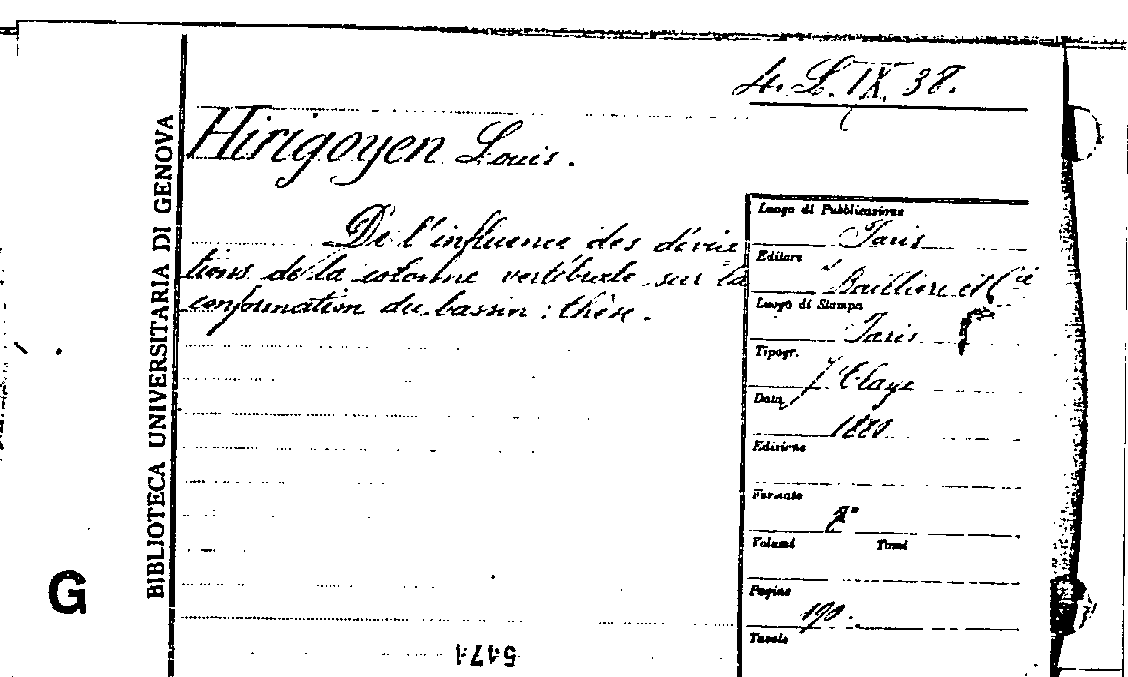 4. L. IX. 38.
BIBLIOTECA UNIVERSITARIA DI GENOVA
Hirigoyen Louis.
De l'influence des dévia
tions de la colonne vertébrale sur la
conformation du bassin : thèse.
Luogo di Pubblicazione
Paris
Editore
Baillière et Cie
Luogo di Stampa
Paris
Tipogr.
J. Claye
Data
1880
Edizione
Formato
8°
Volumi Tomi
Pagine
190.
Tavole
G
5474